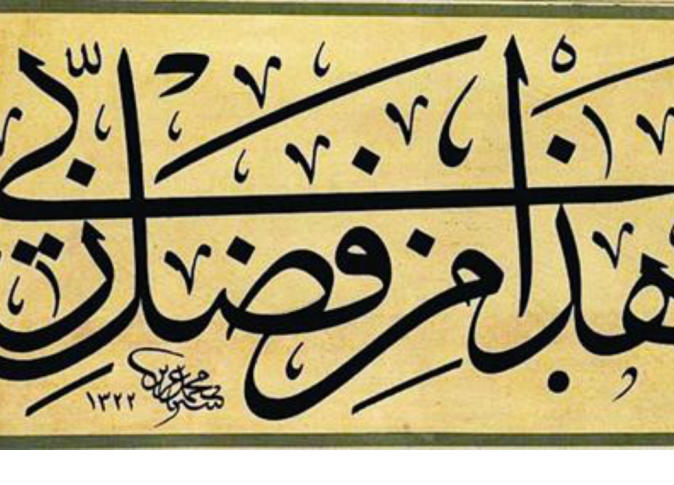 هذا من فضل ربي
محمد عزيز
١٣٢٢